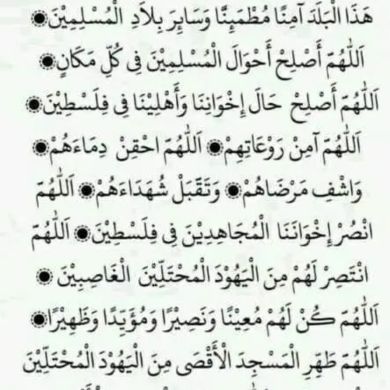 هَذَا الْبَلَدَ آمِنًا مُطْمَئِنًّا وَسَائِرَ بِلاَدِ الْمُسْلِمِيْنَ
اَللّٰهُمَّ أَصْلِحْ أَحْوَالَ الْمُسْلِمِيْنَ فِى كُلِّ مَكَانٍ
اَللّٰهُمَّ أَصْلِحْ حَالَ إِخْوَانِنَا وَأَهْلِيْنَا فِى فِلَسْطِيْنَ
اَللّٰهُمَّ آمِنْ رَوْعَاتِهِمْ اَللّٰهُمَّ احْقِنْ دِمَاءَهُمْ
وَاشْفِ مَرْضَاهُمْ وَتَقَبَّلْ شُهَدَاءَهُمْ اَللّٰهُمَّ
انْصُرْ إِخْوَانَنَا الْمُجَاهِدِيْنَ فِى فِلَسْطِيْنَ اَللّٰهُمَّ
انْتَصِرْ لَهُمْ مِنَ الْيَهُوْدَ الْمُحْتَلِّيْنَ الْغَاصِبِيْنَ
اَللّٰهُمَّ كُنْ لَهُمْ مُعِيْنًا وَنَصِيْرًا وَمُؤَيِّدًا وَظَهِيْرًا
اَللّٰهُمَّ طَهِّرِ الْمَسْجِدَ الْأَقْصَى مِنَ الْيَهُوْدَ الْمُحْتَلِّيْنَ